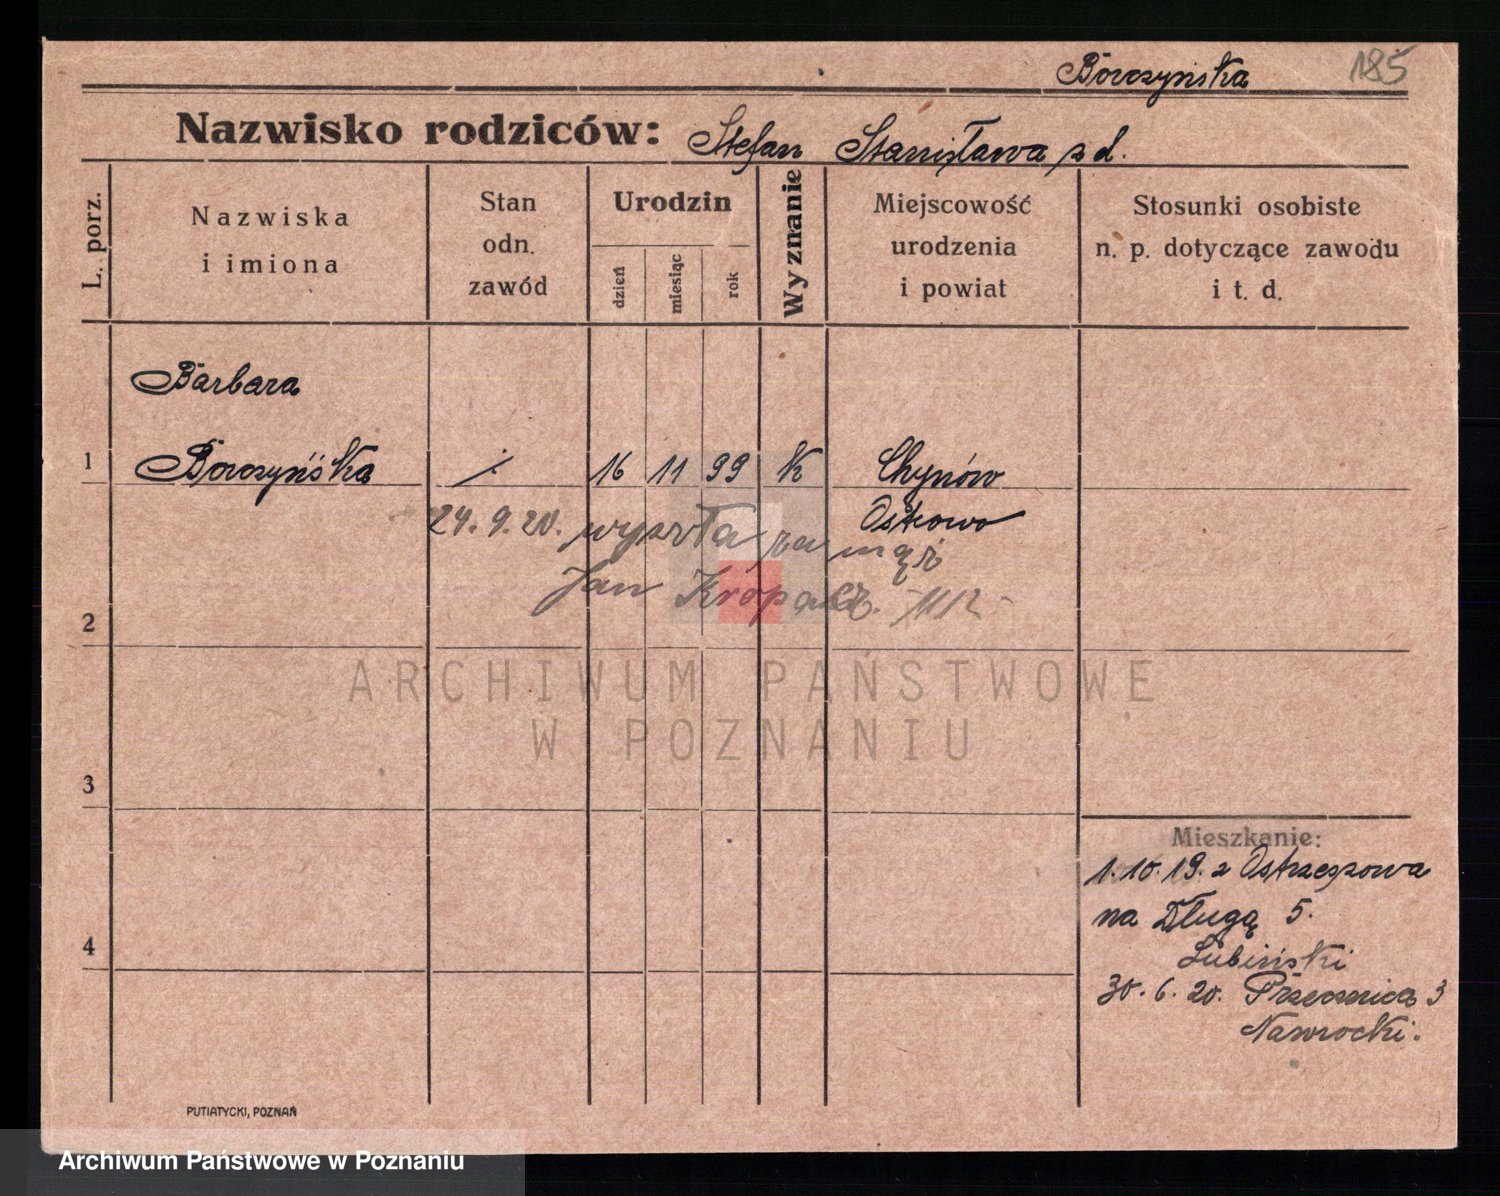 Borczyńska 185
Nazwisko rodziców: Stefan Stanisława z d.
L. porz.
Nazwiska
i imiona
Stan
odn.
zawód
Urodzin
dzień
miesiąc
rok
Wyznanie
Miejscowość
urodzenia
i powiat
Stosunki osobiste
n. p. dotyczące zawodu
i t. d.
Barbara
1 Borczyńska /. 16 11 99 K Chynów
Ostrowo
24.9.20. wyszła za mąż
Jan 112-
2
ARCHIWUM PAŃSTWOWE
W POZNANIU
3
Mieszkanie:
1.10.19. z Ostrzeszowa
na Długą 5.
4
Lubiński
30.6.20. Przecznica 3
Nawrocki.
PUTIATYCKI, POZNAŃ
Archiwum Państwowe w Poznaniu